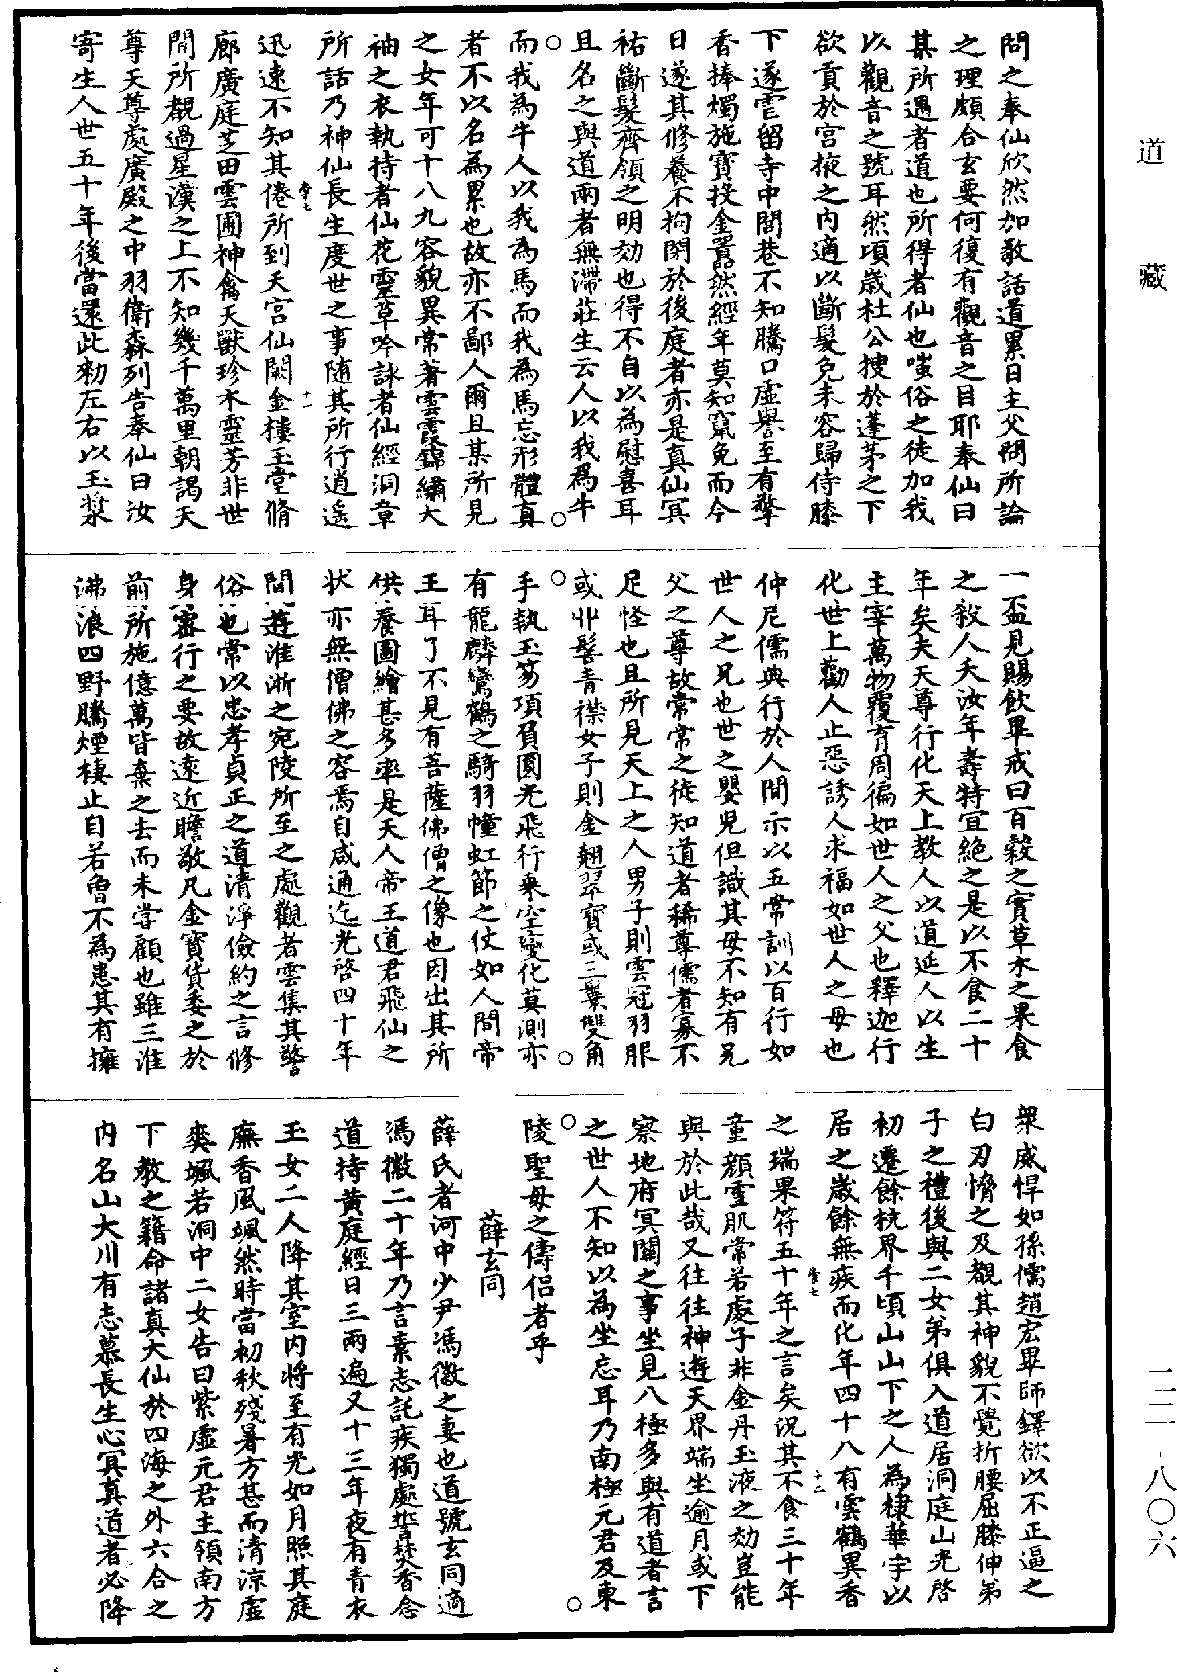 道藏
二二-八〇六
問之奉仙欣然加敬話道累日主父問所論
之理頗合玄要何復有觀音之目耶奉仙曰
某所遇者道也所得者仙也嗤俗之徒加我
以觀音之號耳然頃歲杜公搜於蓬茅之下
欲貢於宮掖之內適以斷髮免未容歸侍膝
下遂雹留寺中閭巷不知騰口虛譽至有擎
香捧燭施寶投金囂然經年莫知竄免而今
日遂其修養不拘閉於後庭者亦是真仙冥
祐斷髮齊領之明効也得不自以為慰喜耳
且名之與道兩者無滯莊生云人以我為牛
而我為牛人以我為馬而我為馬忘形體真
者不以名為累也故亦不鄙人爾且某所見
之女年可十八九容貌異常著雲霞錦繡大
袖之衣執持者仙花靈草吟詠者仙經洞章
所話乃神仙長生度世之事隨其所行逍遙
迅速不知其倦所到天宮仙闕金樓玉堂脩
廊廣庭芝田雲圃神禽天獸珍木靈芳非世
間所覩過星漢之上不知幾千萬里朝謁天
尊天尊處廣殿之中羽衛森列告奉仙曰汝
寄生人世五十年後當還此勑左右以玉漿
一盃見賜飲畢戒曰百穀之實草木之果食
之殺人夭汝年壽特宜絕之是以不食二十
年矣夫天尊行化天上教人以道延人以生
主宰萬物覆育周徧如世人之父也釋迦行
化世上勸人止惡誘人求福如世人之母也
仲尼儒典行於人間示以五常訓以百行如
世人之兄也世之嬰兒但識其母不知有兄
父之尊故常常之徒知道者稀尊儒者寡不
足怪也且所見天上之人男子則雲冠羽服
或丱髻青襟女子則金翹翠寶或三鬟雙角
手執玉笏項負圓光飛行乘空變化莫測亦
有龍麟鸞鶴之騎羽幢虹節之仗如人間帝
王耳了不見有菩薩佛僧之像也因出其所
供養圖繪甚多率是天人帝王道君飛仙之
狀亦無僧佛之容焉自咸通迄光啓四十年
間遊淮浙之宛陵所至之處觀者雲集其警
俗也常以忠孝貞正之道清淨儉約之言修
身密行之要故遠近瞻敬凡金寶貨委之於
前所施億萬皆棄之去而未嘗顧也雖三淮
沸浪四野騰煙棲止自若曾不為患其有擁
衆威悍如孫儒趙宏畢師鐸欲以不正逼之
白刃脅之及覩其神貌不覺折腰屈膝伸弟
子之禮後與二女弟俱入道居洞庭山光啓
初遷餘杭界千頃山山下之人為棣華宇以
居之歲餘無疾而化年四十八有雲鶴異香
之瑞果符五十年之言矣況其不食三十年
童顏靈肌常若處子非金丹玉液之効豈能
與於此哉又往往神遊天界端坐逾月或下
察地府冥關之事坐見八極多與有道者言
之世人不知以為坐忘耳乃南極元君及東
陵聖母之儔侶者乎
薛玄同
薛氏者河中少尹馮徽之妻也道號玄同適
馮徽二十年乃言素志託疾獨處誓焚香念
道持黃庭經日三兩遍又十三年夜有青衣
玉女二人降其室內將至有光如月照其庭
廡香風颯然時當初秋殘暑方甚而清涼虛
爽颯若洞中二女告曰紫虛元君主領南方
下教之籍命諸真大仙於四海之外六合之
內名山大川有志慕長生心冥真道者必降